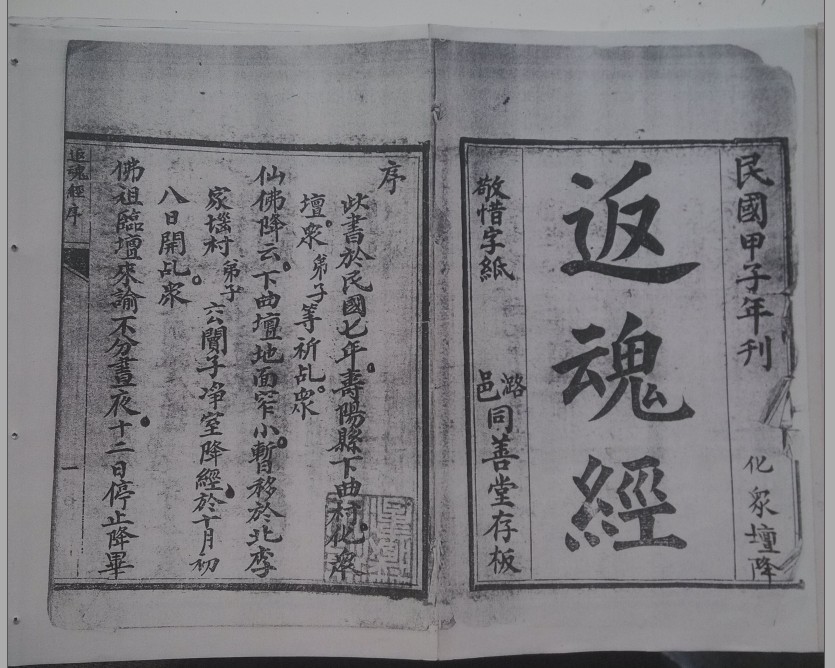 民國甲子年刊
化衆壇降
返魂經
敬惜字紙
潞邑同善堂存板
序
此書於民國七年。壽陽縣下曲村化衆
壇。衆弟子等祈乩。衆
仙佛降云。下曲壇地面窄小。暫移於北李
家墕村弟子公闓子净室降經。於十月初
八日開乩。衆
佛祖臨壇來諭不分晝夜。十二日停止降畢
返魂經序
一